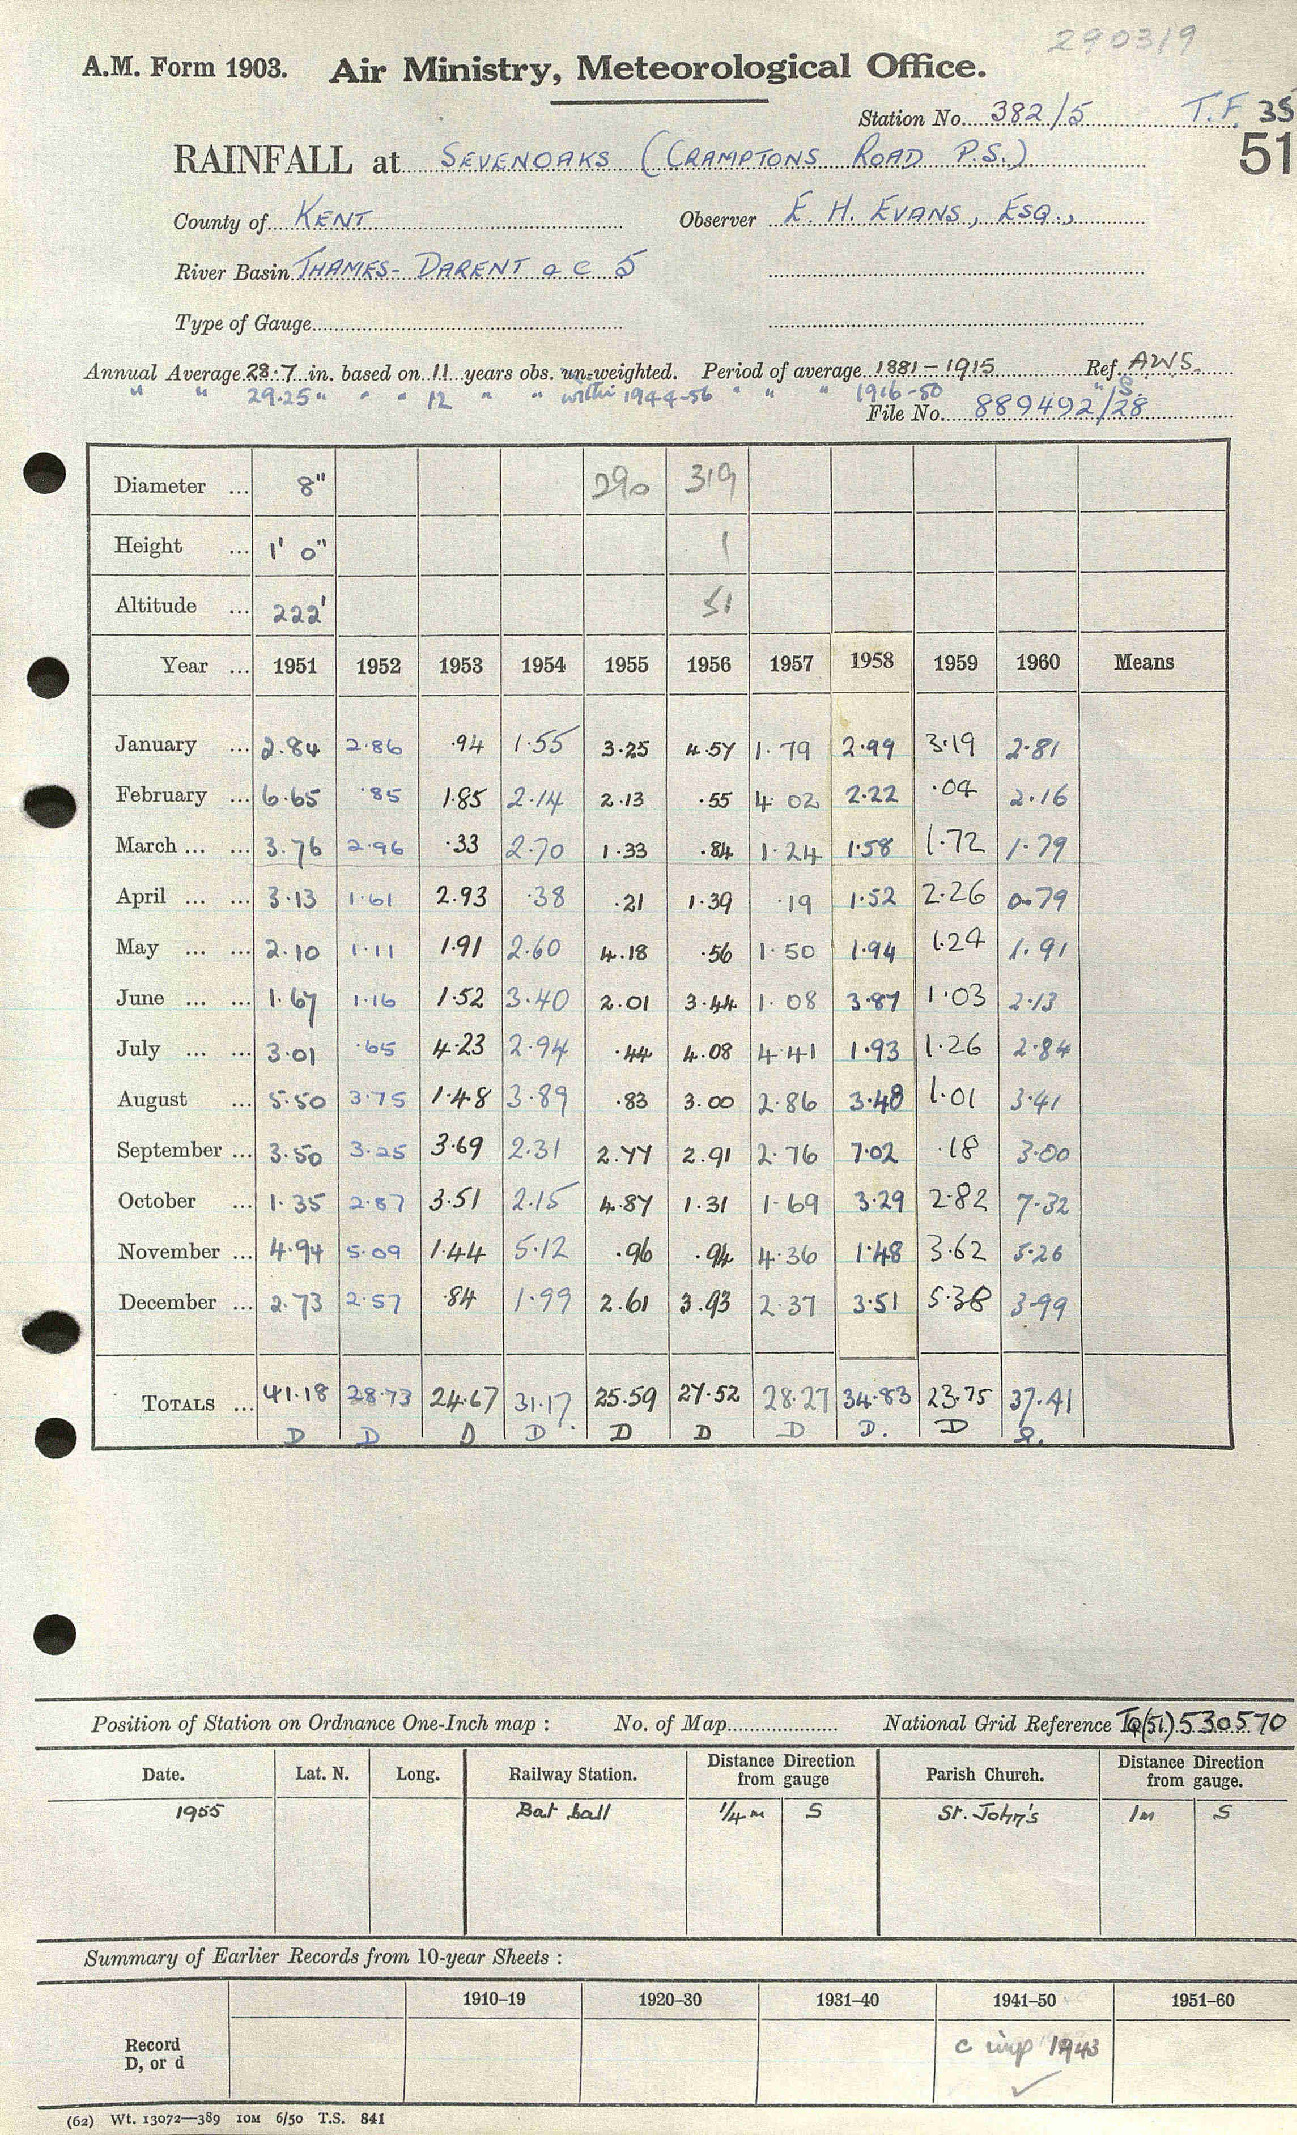 290319
A.M. Form 1903. Air Ministry, Meteorological Office.
Station No. 382/5 T.F. 35
51
RAINFALL at SEVENOAKS (CRAMPTONS ROAD P.S.)
County of KENT Observer E. H. EVANS, ESQ.,
River Basin THAMES- DARENT a c 5
Type of Gauge
Annual Average 28.7 in. based on 11 years obs. un-weighted. Period of average 1881-1915 Ref. AWS.
" " 29.25 " " " 12 " " within 1944-56 " " " 1916-50 " S.
File No. 889492/28
Diameter ... 8" 290 319
Height ... 1' 0" 1
Altitude ... 222' 51
Year ... 1951 1952 1953 1954 1955 1956 1957 1958 1959 1960 Means
January ... 2.84 2.86 .94 1.55 3.25 4.57 1.79 2.99 3.19 2.81
February ... 6.65 .85 1.85 2.14 2.13 .55 4.02 2.22 .04 2.16
March ... ... 3.76 2.96 .33 2.70 1.33 .84 1.24 1.58 1.72 1.79
April ... ... 3.13 1.61 2.93 .38 .21 1.39 .19 1.52 2.26 0.79
May ... ... 2.10 1.11 1.91 2.60 4.18 .56 1.50 1.94 1.24 1.91
June ... ... 1.67 1.16 1.52 3.40 2.01 3.44 1.08 3.87 1.03 2.13
July ... ... 3.01 .65 4.23 2.94 .44 4.08 4.41 1.93 1.26 2.84
August ... 5.50 3.75 1.48 3.89 .83 3.00 2.86 3.48 1.01 3.41
September ... 3.50 3.25 3.69 2.31 2.77 2.91 2.76 7.02 .18 3.00
October ... 1.35 2.87 3.51 2.15 4.87 1.31 1.69 3.29 2.82 7.32
November ... 4.94 5.09 1.44 5.12 .96 .94 4.36 1.48 3.62 5.26
December ... 2.73 2.57 .84 1.99 2.61 3.93 2.37 3.51 5.38 3.99
TOTALS ... 41.18 28.73 24.67 31.17. 25.59 27.52 28.27 34.83 23.75 37.41
D D D D D D D D. D
Position of Station on Ordnance One-Inch map : No. of Map National Grid Reference TQ(51) 530570
Date. Lat. N. Long. Railway Station. Distance Direction from gauge Parish Church. Distance Direction from gauge.
1955 Bat ball 1/4 m S St. John's 1m S
Summary of Earlier Records from 10-year Sheets :
1910-19 1920-30 1931-40 1941-50 1951-60
Record D, or d c inp 1943
(62) Wt. 13072—389 10M 6/50 T.S. 841